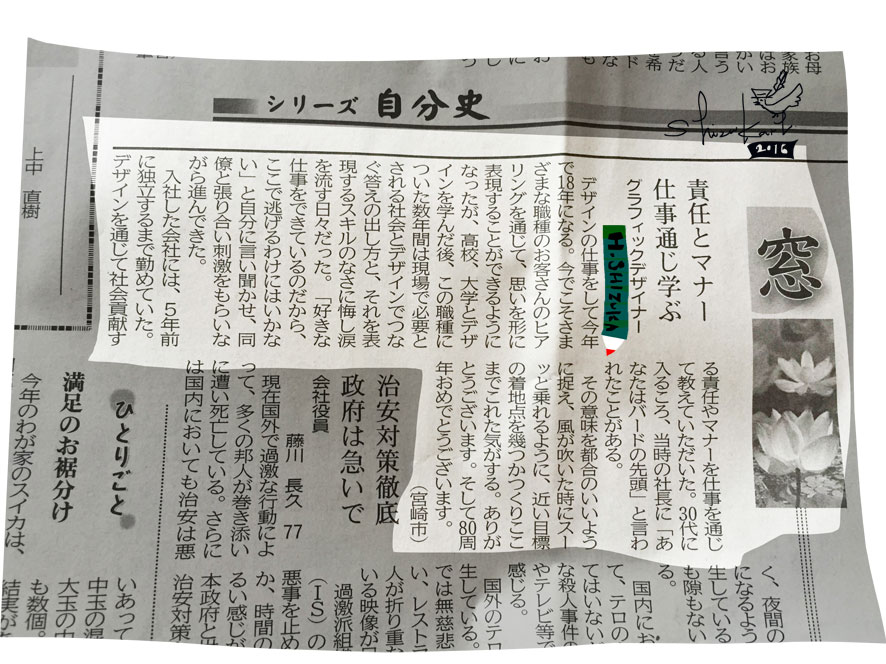 シリーズ 自分史
2016
窓
責任とマナー
仕事通じ学ぶ
グラフィックデザイナー
H.SHIZUKA
デザインの仕事をして今年
で18年になる。今でこそさま
ざまな職種のお客さんのヒア
リングを通じて、思いを形に
表現することができるように
なったが、高校、大学とデザ
インを学んだ後、この職種に
ついた数年間は現場で必要と
される社会とデザインでつな
ぐ答えの出し方と、それを表
現するスキルのなさに悔し涙
を流す日々だった。「好きな
仕事をできているのだから、
ここで逃げるわけにはいかな
い」と自分に言い聞かせ、同
僚と張り合い刺激をもらいな
がら進んできた。
入社した会社には、5年前
に独立するまで勤めていた。
デザインを通じて社会貢献す
る責任やマナーを仕事を通じ
て教えていただいた。30代に
入るころ、当時の社長に「あ
なたはバードの先頭」と言わ
れたことがある。
その意味を都合のいいよう
に捉え、風が吹いた時にスー
ッと乗れるように、近い目標
の着地点を幾つかつくりここ
までこれた気がする。ありが
とうございます。そして80周
年おめでとうございます。
(宮崎市)
治安対策徹底
政府は急いで
会社役員
藤川 長久 77
現在国外で過激な行動によ
って、多くの邦人が巻き添い
に遭い死亡している。さらに
は国内においても治安は悪
く、夜間の
になるよう
生している
も隙もない
る。
国内にお
て、テロの
てはいない
な殺人事件の
やテレビ等で
感じる。
国外のテロ
生している。
では無慈悲
い、レストラ
人が折り重な
いる映像が
過激派組
(IS)の
悪事を止め
か、時間の
るい感じが
本政府と
治安対策
上中 直樹
ひとりごと
満足のお裾分け
今年のわが家のスイカは、
いあって
中玉の混
大玉の中
も数個。
結実が